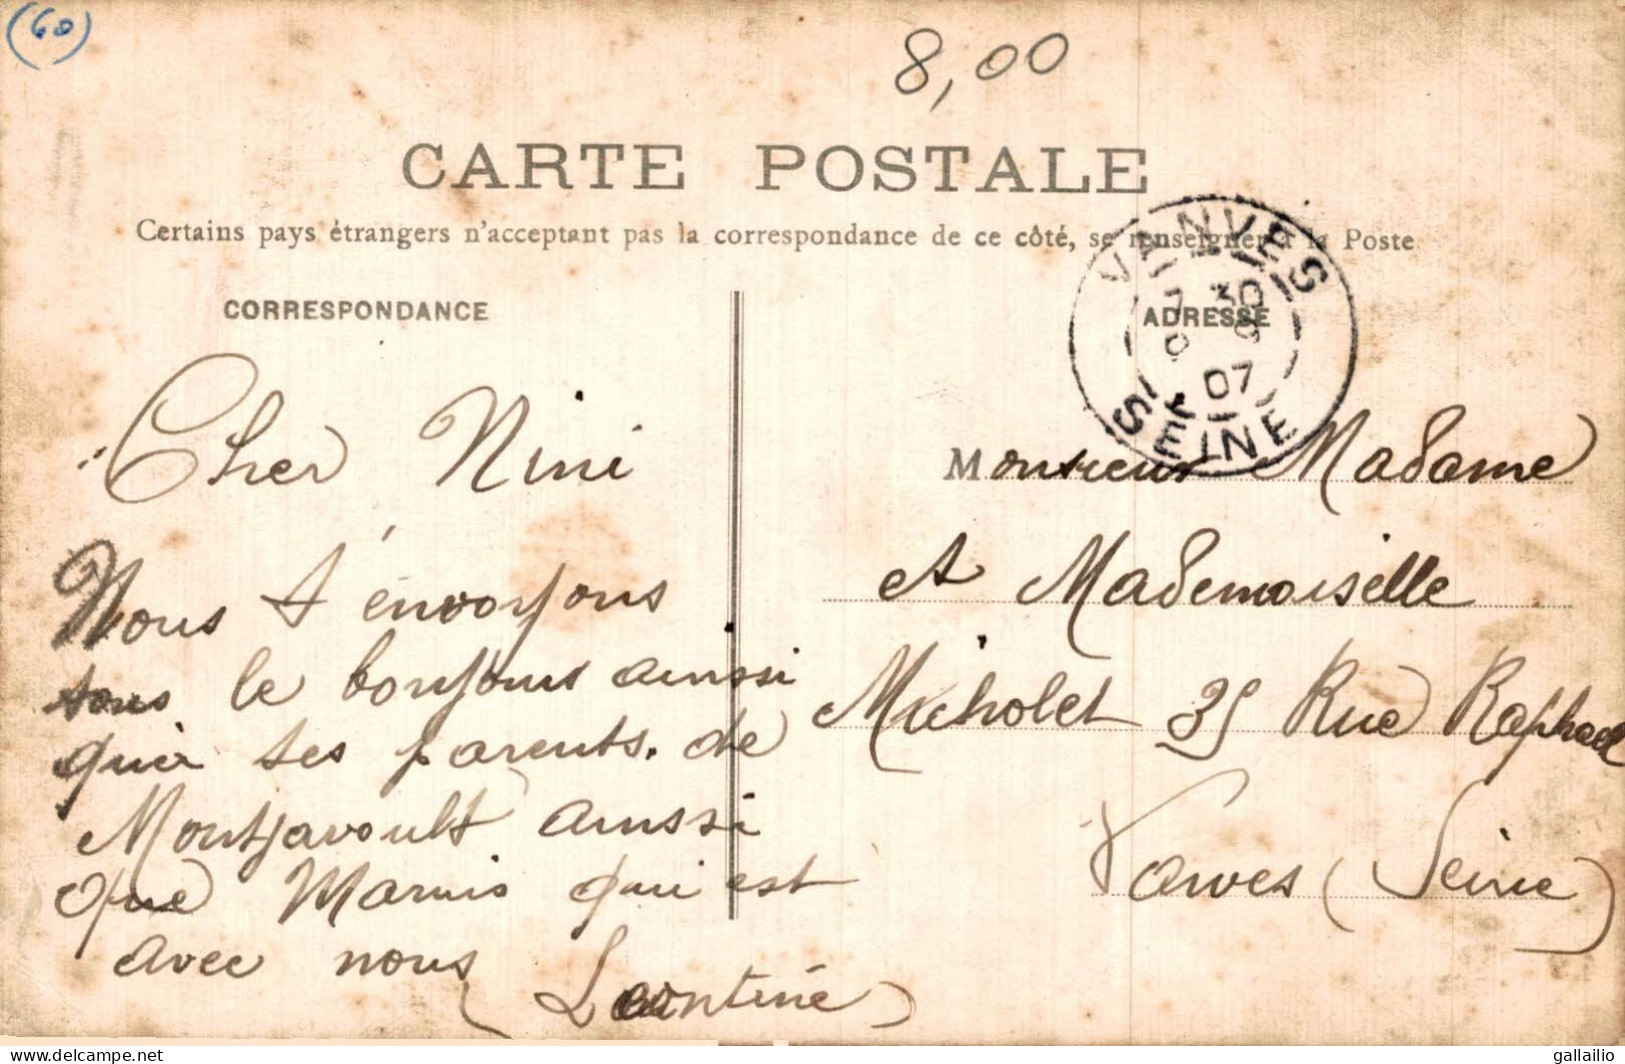 (60)
8,00
CARTE POSTALE
Certains pays étrangers n'acceptant pas la correspondance de ce côté, se renseigner à la Poste
CORRESPONDANCE
ADRESSE
VANVES
7 30
9
07
SEINE
Cher Nini
Nous t'envoyons
tous le bonjour ainsi
que tes parents. de
Montjavoult ainssi
que Marius qui est
avec nous
Léontine
Monsieur Madame
et Mademoiselle
Micholet 35 Rue Raphael
Vanves (Seine)
www.delcampe.net
gallailio